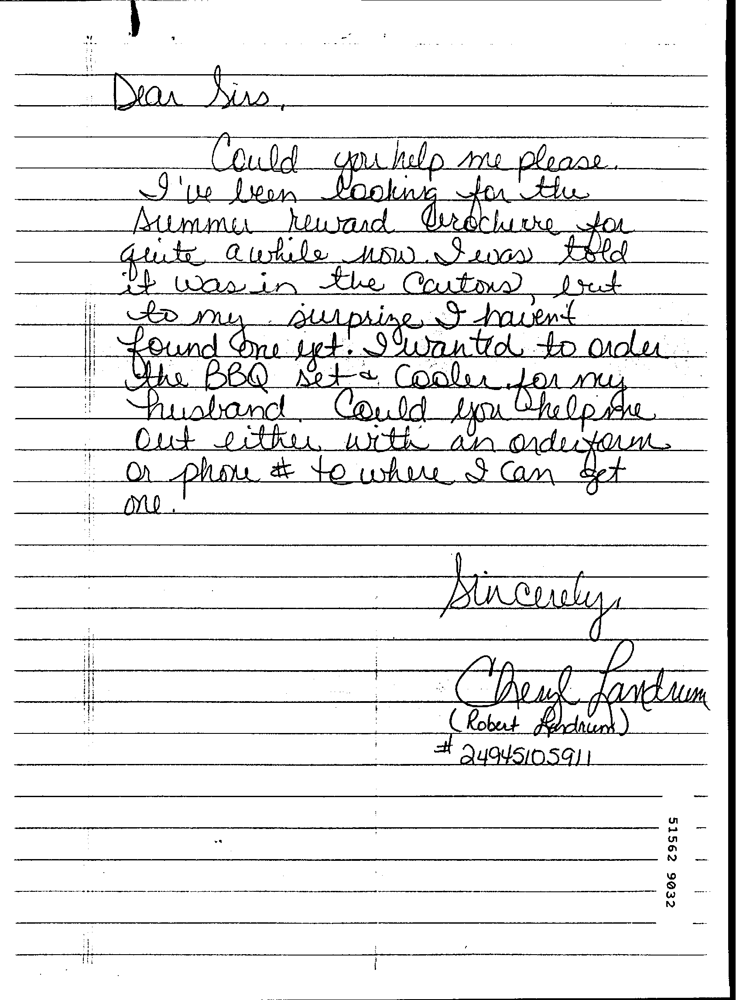 Dear Sirs,
Could you help me please.
I've been looking for the
summer reward brochure for
quite awhile now. I was told
it was in the Cartons, but
to my surprize I haven't
found one yet. I wanted to order
the BBQ set & Cooler for my
husband. Could you help me
out either with an order form
or phone # to where I can get
one.
Sincerely,
Cheryl Landrum
(Robert Landrum)
# 24945105911
51562 9032